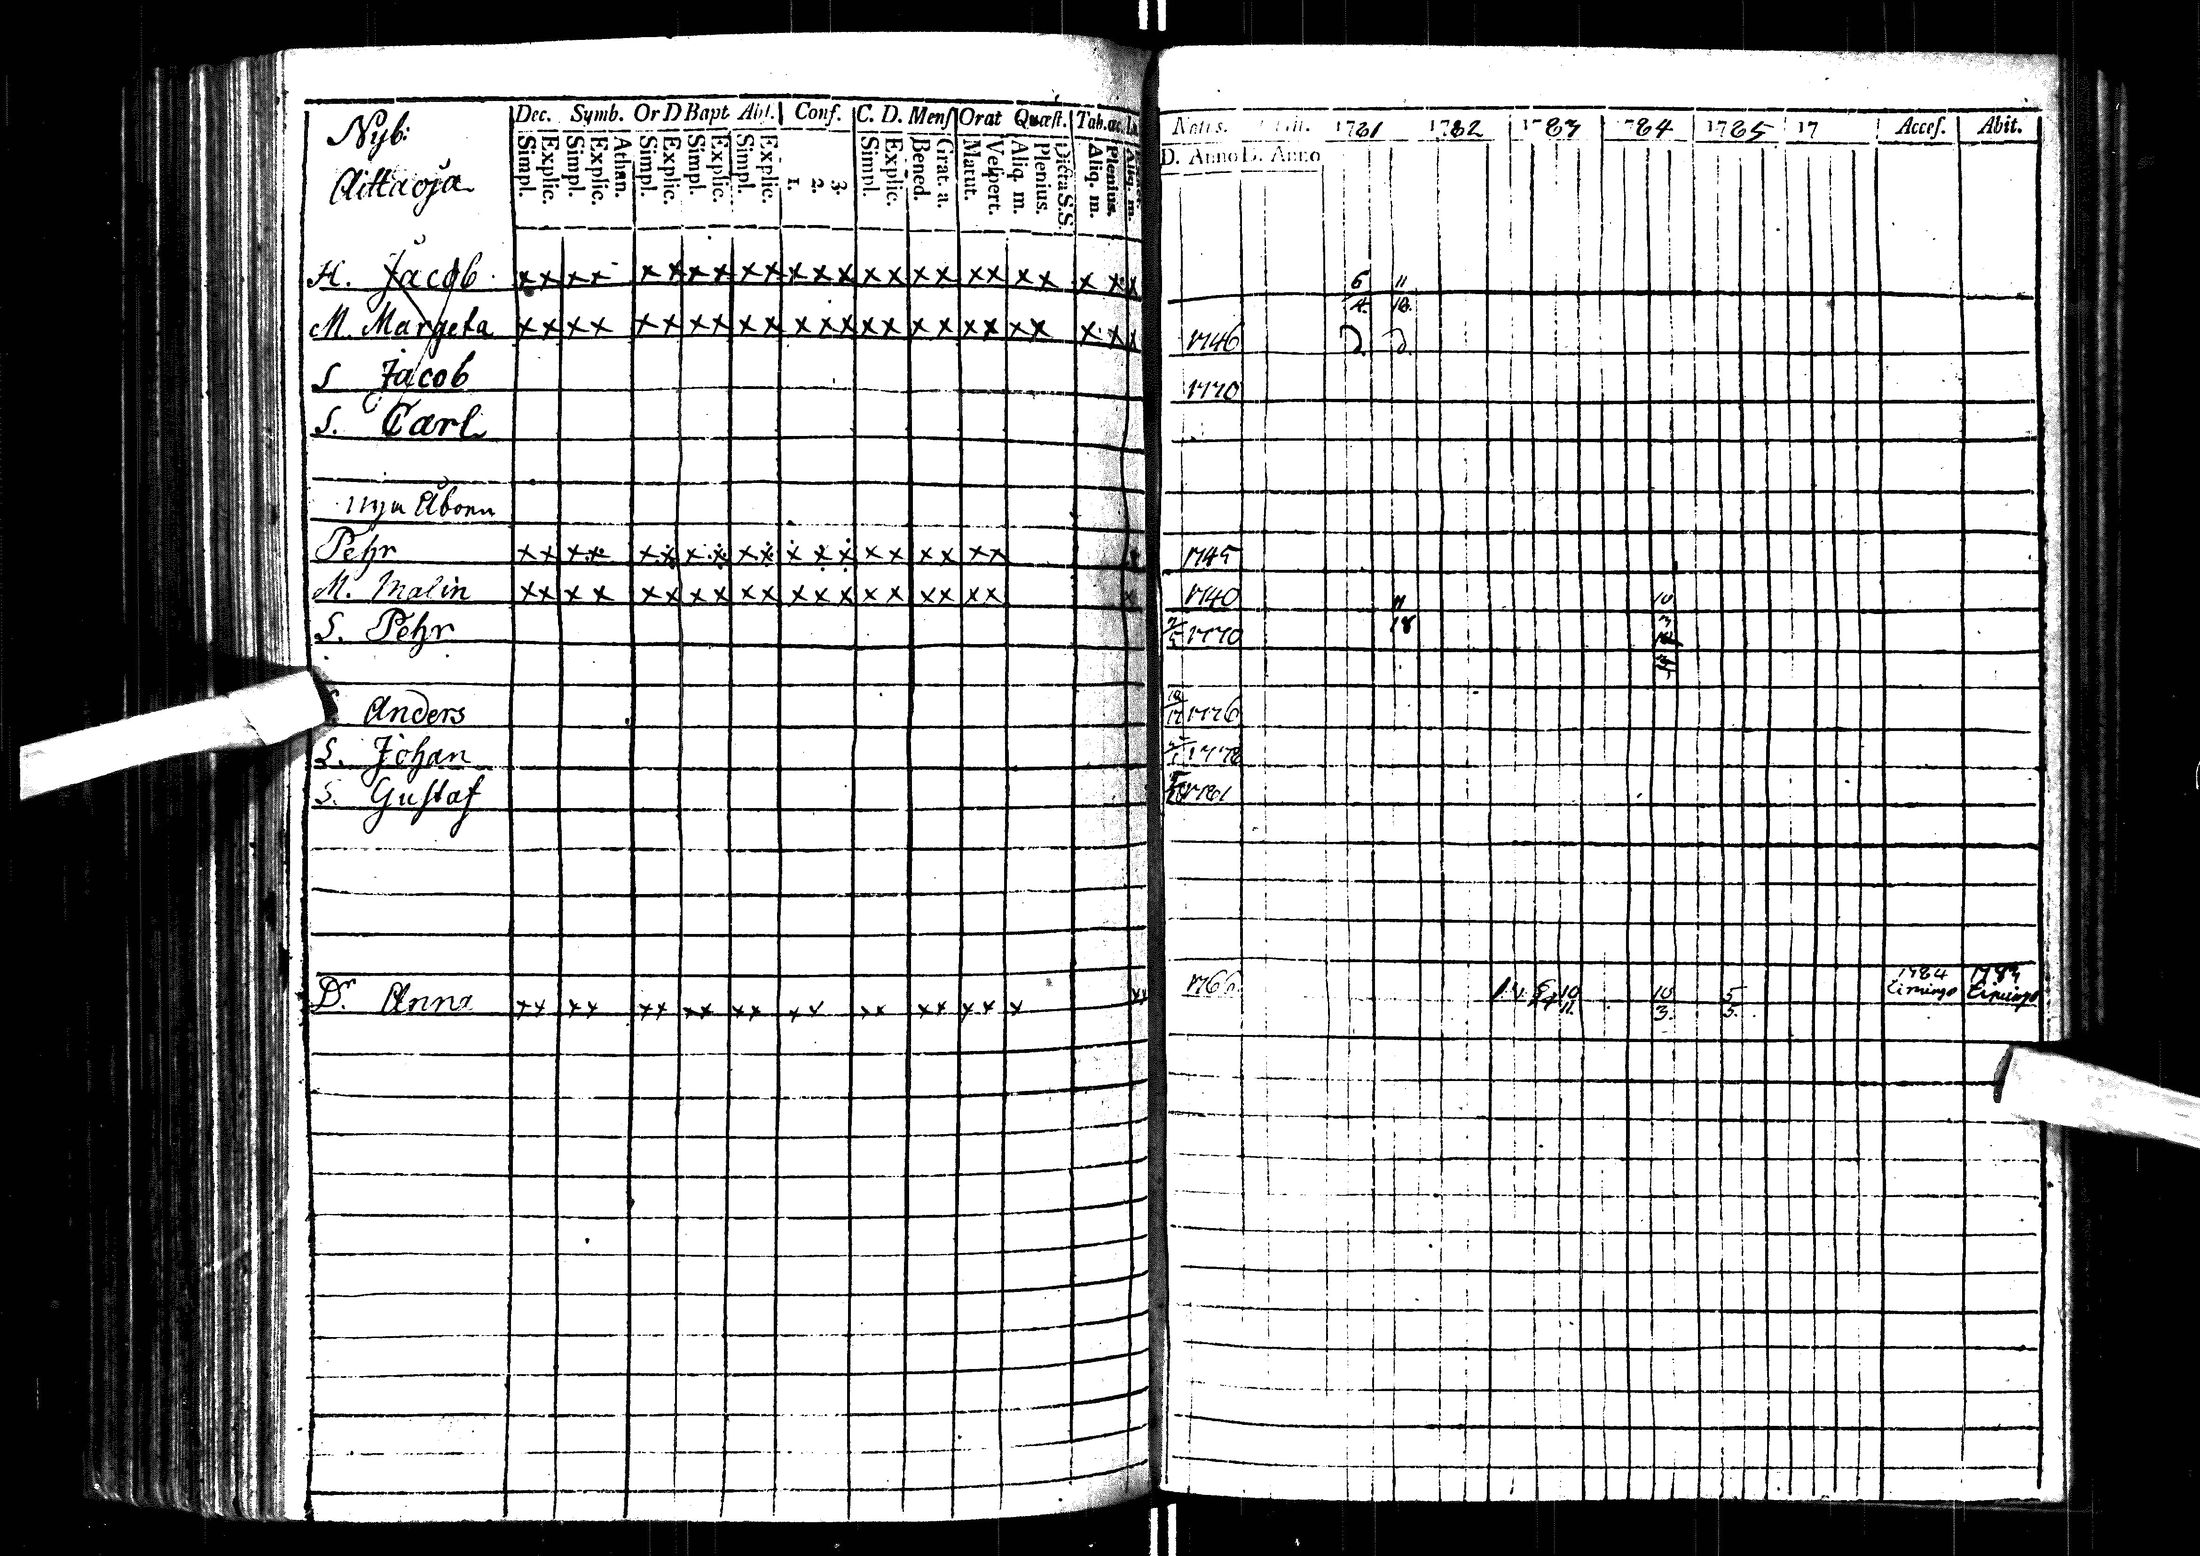 Nyb:
Aittaoja
Dec. Symb. Or D Bapt Abs. Conf. C. D. Mens Orat Quæst. Tab. œc.
Simpl. Explic. Simpl. Explic. Athan. Simpl. Explic. Simpl. Explic. Simpl. Explic. 1. 2. 3. Simpl. Explic. Bened. Grat. a. Matut. Vespert. Aliq. m. Plenius. Dicta S.S. Aliq. m. Plenius. Aliq. m.
1781 1782 1783 1784 1785 17 Acces. Abit.
D. Anno D. Anno
H. Jacob x x x x x x x x x x x x x x x x x x x x x x x x 6 11
M. Margeta x x x x x x x x x x x x x x x x x x x x x x x x 1746 4 18
S Jacob 1770
S. Carl
nya Åboer
Pehr x x x x x x x x x x x x x x x x x x x x x 1745
M. Malin x x x x x x x x x x x x x x x x x x x x 1740 10
S. Pehr 1770 18
S Anders 1776
S. Johan 1778
S. Gustaf 1781
Dr. Anna x x x x x x x x x x x x x x x x x x x x x 1766 10 10 5 1784 1783
11. 3. 5.